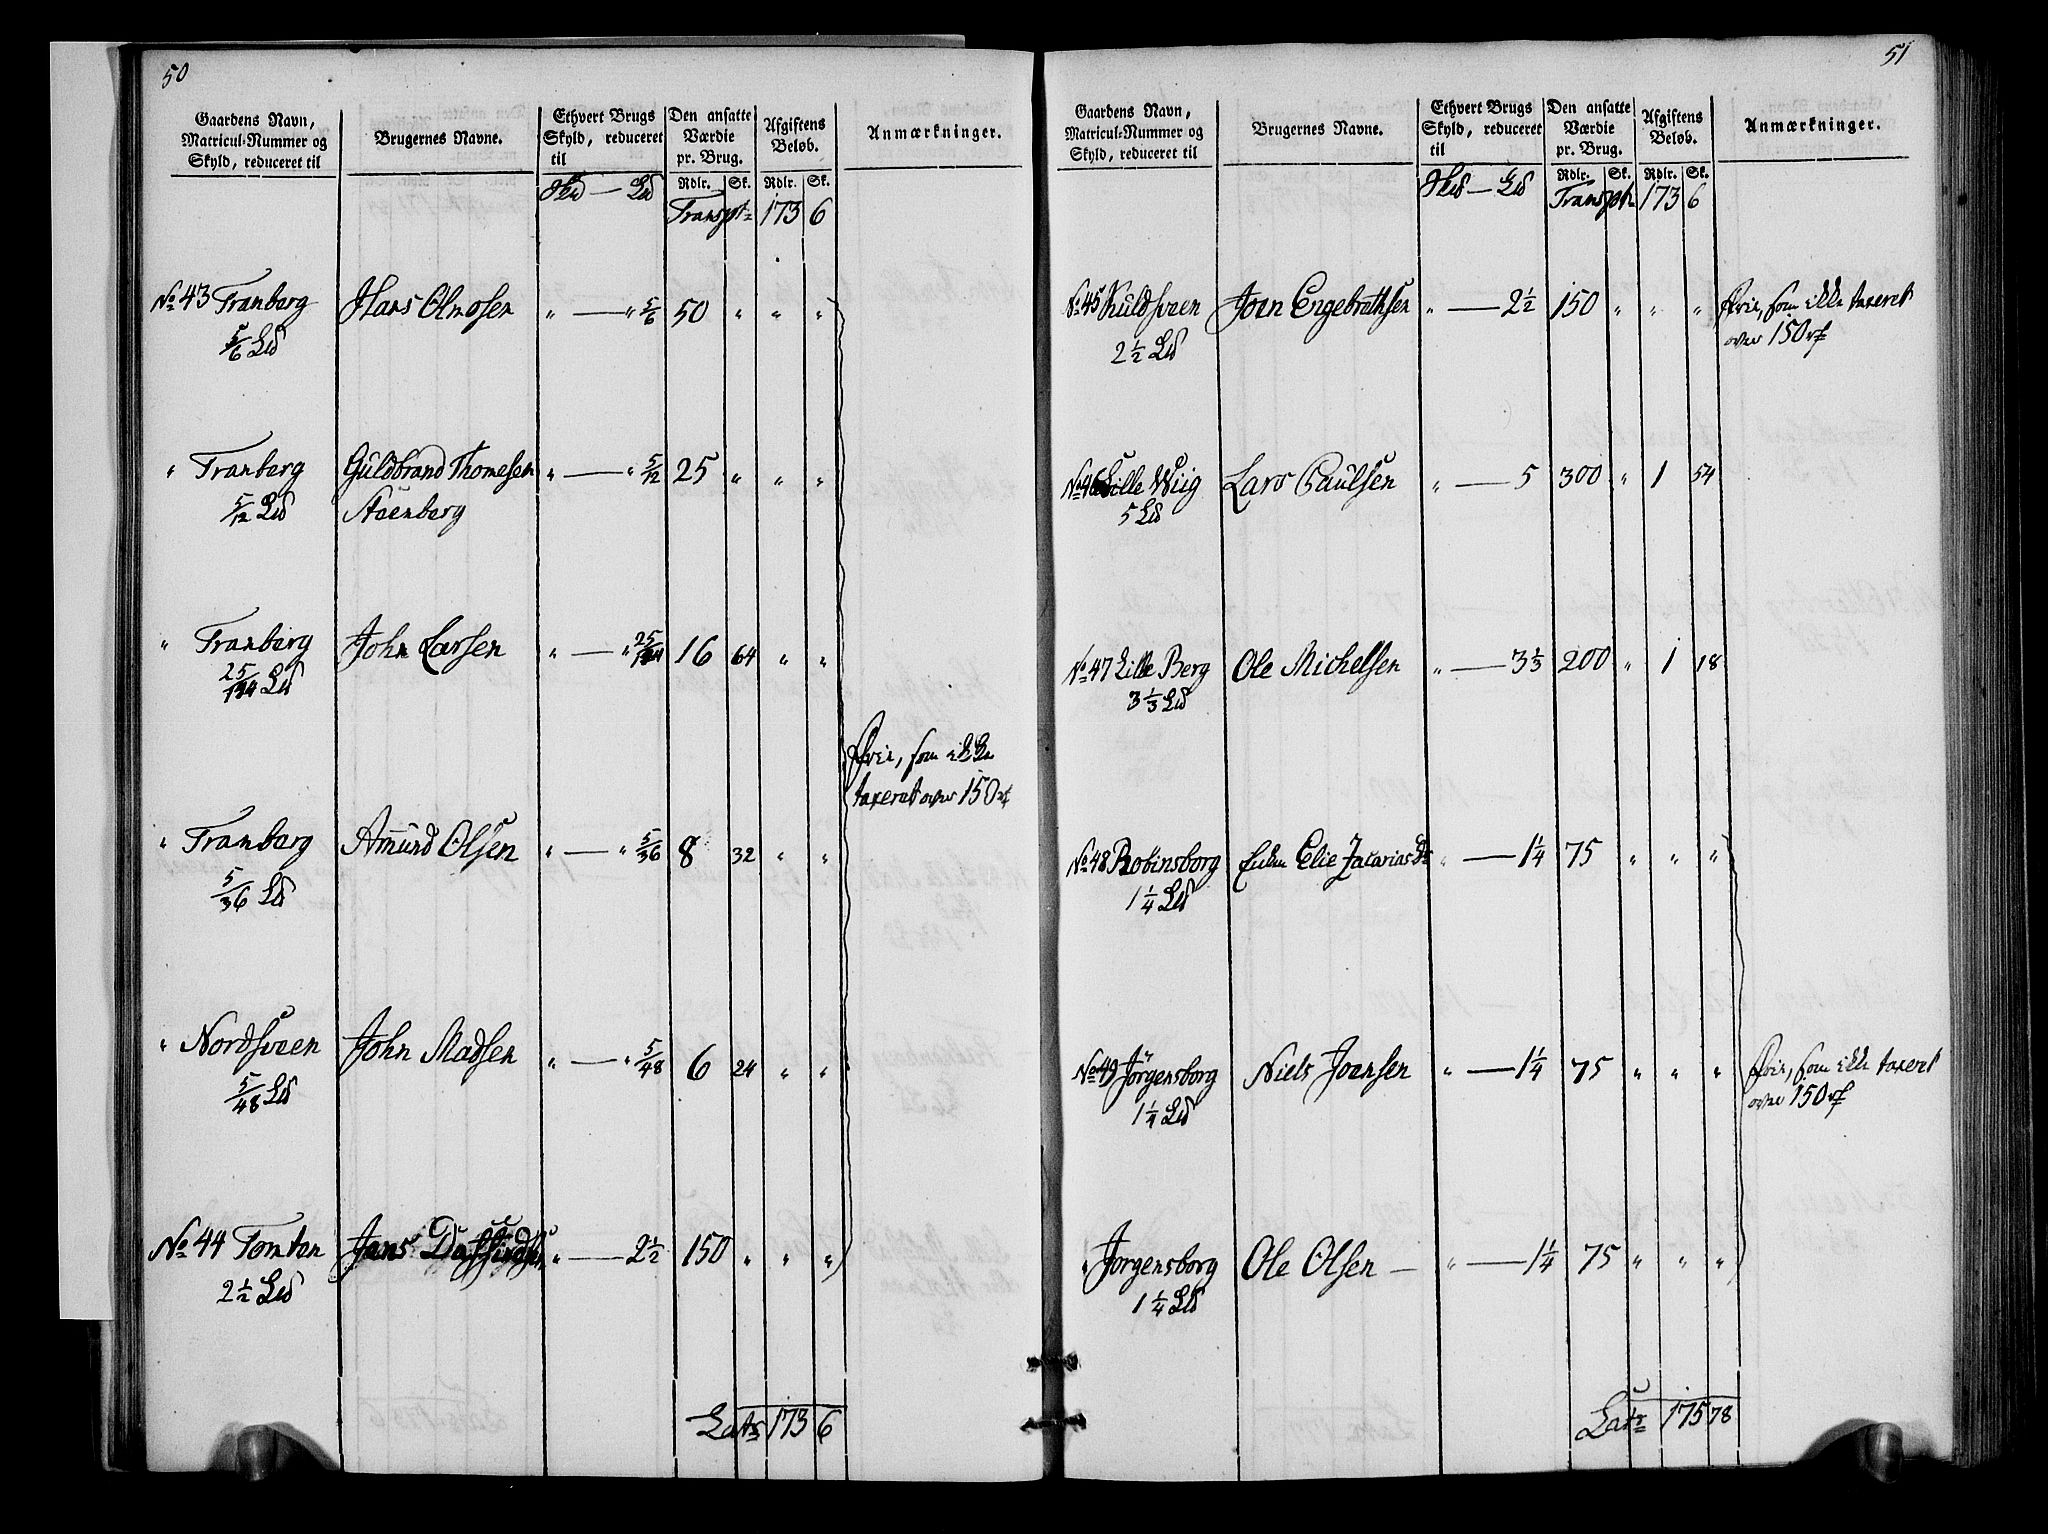 50
Gaardens Navn, Matricul-Nummer og Skyld, reduceret til | Brugernes Navne. | Ethvert Brugs Skyld, reduceret til | Den ansatte Værdie pr. Brug. | Afgiftens Beløb. | Anmærkninger.
Hud — Ld | Rdlr. Sk. | Rdlr. Sk.
Transpt= 173 6
No 43 Tranberg 5/6 Ld | Hans Olnosen | " — " 5/6 | 50 " | " "
" Tranberg 5/12 Ld | Guldbrand Thomesen Aaenberg | " — " 5/12 | 25 " | " "
" Tranberg 25/144 Ld | John Larsen | " — " 25/144 | 16 64 | " "
Frie, som ikke
taxeret over 150 rd
" Tranberg 5/36 Ld | Amund Olsen | " — " 5/36 | 8 32 | " "
" Nordsveen 5/48 Ld | John Madsen | " — " 5/48 | 6 24 | " "
No 44 Tomten 2 1/2 Ld | Jens | " — 2 1/2 | 150 " | " "
Lats 173 6
51
Gaardens Navn, Matricul-Nummer og Skyld, reduceret til | Brugernes Navne. | Ethvert Brugs Skyld, reduceret til | Den ansatte Værdie pr. Brug. | Afgiftens Beløb. | Anmærkninger.
Hud — Ld | Rdlr. Sk. | Rdlr. Sk.
Transpt= 173 6
No 45 Kuldsveen 2 1/2 Ld | Joen Engebrethsen | " — 2 1/2 | 150 " | " " | Frie, som ikke taxeret over 150 rd
No 46 Lille Wiig 5 Ld | Lars Paulsen | " — 5 | 300 " | 1 54
No 47 Lille Berg 3 1/3 Ld | Ole Michelsen | " — 3 1/3 | 200 " | 1 18
No 48 Robinsborg 1 1/4 Ld | Enken Elie Zacarias Dr | " — 1 1/4 | 75 " | " "
No 49 Jörgensborg 1 1/4 Ld | Niels Joensen | " — 1 1/4 | 75 " | " " | Frie, som ikke taxeret over 150 rd
" Jorgensborg 1 1/4 Ld | Ole Olsen — | " — 1 1/4 | 75 " | " "
Lats 175 78